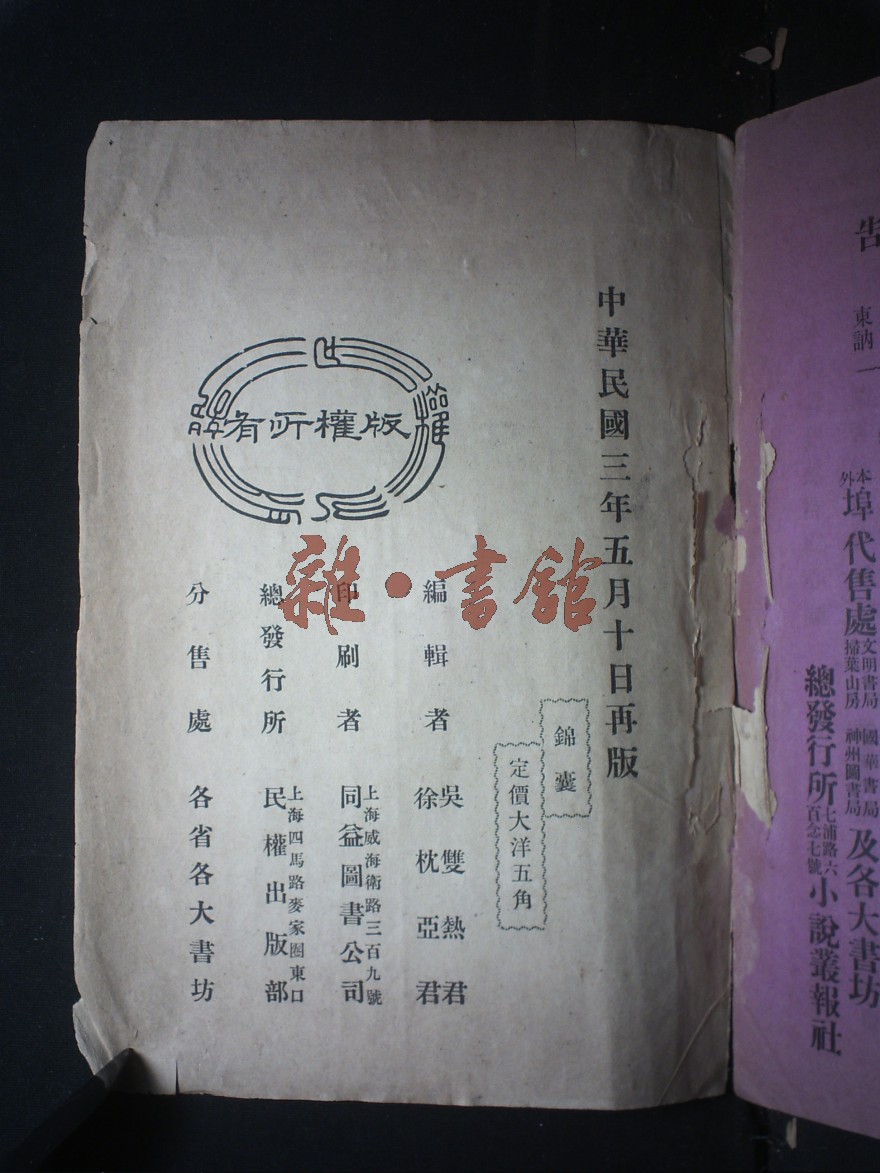 告
東訥一
本外埠代售處文明書局 國華書局掃葉山房 神州圖書局及各大書坊
總發行所七浦路六百念七號小說叢報社
中華民國三年五月十日再版
錦囊
定價大洋五角
版權所有
編輯者 吳雙熱君
徐枕亞君
印刷者 上海威海衛路三百九號
同益圖書公司
總發行所 上海四馬路麥家圈東口
民權出版部
分售處 各省各大書坊
雜·書館